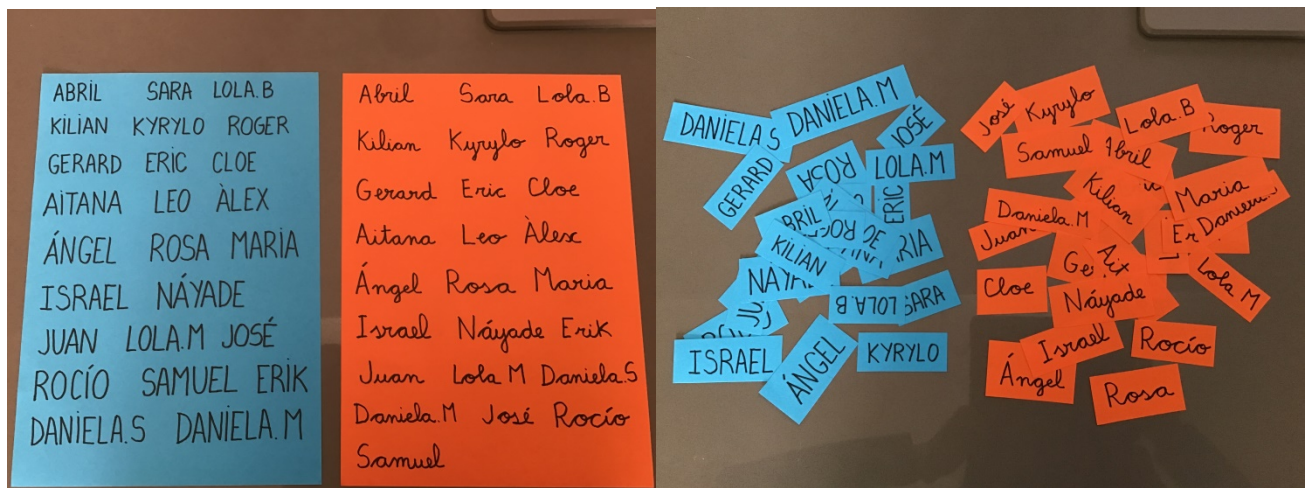 ABRIL SARA LOLA.B
KILIAN KYRYLO ROGER
GERARD ERIC CLOE
AITANA LEO ÀLEX
ÁNGEL ROSA MARIA
ISRAEL NÁYADE
JUAN LOLA.M JOSÉ
ROCÍO SAMUEL ERIK
DANIELA.S DANIELA.M
Abril Sara Lola.B
Kilian Kyrylo Roger
Gerard Eric Cloe
Aitana Leo Àlex
Ángel Rosa Maria
Israel Náyade Erik
Juan Lola M Daniela.S
Daniela.M José Rocío
Samuel
DANIELA.S
DANIELA.M
JOSÉ
GERARD
ROSA
LOLA.M
ERIC
BRIL
KILIAN
ROGE
RIA
NÁYA
LOLA.B
SARA
ISRAEL
ÁNGEL
KYRYLO
José
Kyrylo
Lola.B
Roger
Samuel
bril
Kilian
Maria
Daniela.M
Juan
Er
Daniel
Ge
Ait
Lola M
Cloe
Náyade
Israel
Rocío
Ángel
Rosa